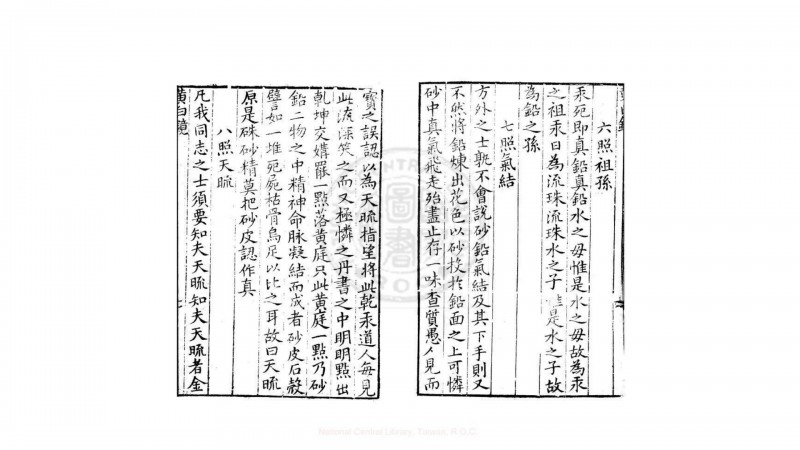 六照祖孫
汞死即真鉛真鉛水之母惟是水之母故為汞
之祖汞曰為流珠流珠水之子惟是水之子故
為鉛之孫
七照氣結
方外之士孰不會說砂鉛氣結及其下手則又
不然將鉛煉出花色以砂投於鉛面之上可憐
砂中真氣飛走殆盡止存一味查質愚人見而
寶之誤認以為天䂖指望將此乾汞道人每見
此流深笑之而又極憐之丹書之中明明點出
乾坤交媾罷一點落黃庭只此黃庭一點乃砂
鉛二物之中精神命脈凝結而成者砂皮石殼
譬如一堆死屍枯骨烏足以比之耳故曰天䂖
原是硃砂精莫把砂皮認作真
八照天䂖
凡我同志之士須要知夫天䂖知夫天䂖者金
黃白鏡